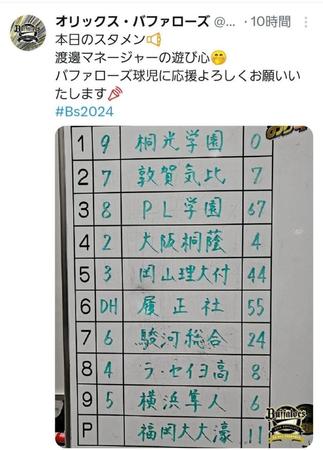 オリックス・バファローズ @... ・10時間
本日のスタメン
渡邊マネージャーの遊び心
バファローズ球児に応援よろしくお願いい
たします
#Bs2024
1 9 桐光学園 0
2 7 敦賀気比 7
3 8 PL学園 67
4 2 大阪桐蔭 4
5 3 岡山理大付 44
6 DH 履正社 55
7 6 駿河総合 24
8 4 ラ・セイヨ高 8
9 5 横浜隼人 6
P 福岡大大濠 11
Buffaloes